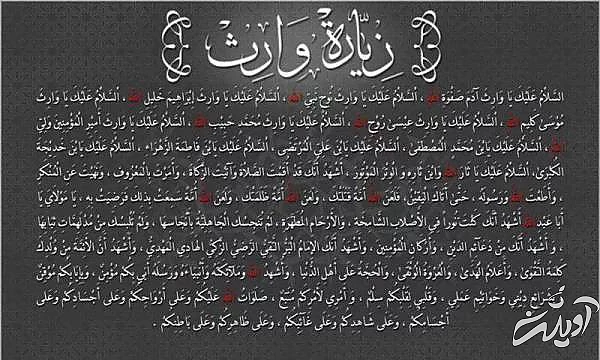 زیارة وارث
اَلسَّلامُ عَلَیْكَ یَا وارِثَ آدَمَ صَفْوَةِ الله ، اَلسَّلامُ عَلَیْكَ یَا وارِثَ نُوح نَبِیِّ الله ، اَلسَّلامُ عَلَیْكَ یَا وارِثَ إِبْراهِیمَ خَلِیلِ الله ، اَلسَّلامُ عَلَیْكَ یَا وارِثَ
مُوسَىٰ كَلِیمِ الله ، اَلسَّلامُ عَلَیْكَ یَا وارِثَ عِیسَىٰ رُوحِ الله ، اَلسَّلامُ عَلَیْكَ یَا وارِثَ مُحَمَّد حَبِیبِ الله ، اَلسَّلامُ عَلَیْكَ یَا وارِثَ أَمِیرِ الْمُؤْمِنِینَ وَلِیِّ
الله ، اَلسَّلامُ عَلَیْكَ یَابْنَ مُحَمَّد الْمُصْطَفَىٰ ، اَلسَّلامُ عَلَیْكَ یَابْنَ عَلِیّ الْمُرْتَضَىٰ ، اَلسَّلامُ عَلَیْكَ یَابْنَ فاطِمَةَ الزَّهْراءِ ، اَلسَّلامُ عَلَیْكَ یَابْنَ خَدِیجَةَ
الْكُبْرَىٰ ، اَلسَّلامُ عَلَیْكَ یَا ثارَ الله وَابْنَ ثارِهِ وَ الْوِتْرَ الْمَوْتُورَ ، أَشْهَدُ أَنَّكَ قَدْ أَقَمْتَ الصَّلاةَ وَآتَیْتَ الزَّكاةَ ، وَأَمَرْتَ بِالْمَعْرُوفِ ، وَنَهَیْتَ عَنِ الْمُنْكَرِ
، وَأَطَعْتَ الله وَرَسُولَهُ ، حَتَّىٰ أَتاكَ الْیَقِینُ ، فَلَعَنَ الله أُمَّةً قَتَلَتْكَ ، وَلَعَنَ الله أُمَّةً ظَلَمَتْكَ ، وَلَعَنَ الله أُمَّةً سَمِعَتْ بِذٰلِكَ فَرَضِیَتْ بِهِ ، یَا مَوْلایَ یَا
أَبا عَبْدِ الله أَشْهَدُ أَنَّكَ كُنْتَ نُوراً فِی الْأَصْلابِ الشَّامِخَةِ ، وَالْأَرْحامِ الْمُطَهَّرَةِ ، لَمْ تُنَجِّسْكَ الْجاهِلِیَّةُ بِأَنْجاسِها ، وَلَمْ تُلْبِسْكَ مِنْ مُدْلَهِمَّاتِ ثِیابِها
، وَ أَشْهَدُ أَنَّكَ مِنْ دَعائِمِ الدِّینِ ، وَأَرْكانِ الْمُؤْمِنِینَ ، وَأَشْهَدُ أَنَّكَ الإِمامُ الْبَرُّ التَّقِیُّ الرَّضِیُّ الزَّكِیُّ الْهادِی الْمَهْدِیُّ ، وَأَشْهَدُ أَنَّ الْأَئِمَّةَ مِنْ وُلْدِكَ
كَلِمَةُ التَّقْوَىٰ ، وَأَعْلامُ الْهُدَىٰ ، وَالْعُرْوَةُ الْوُثْقَىٰ ، وَالْحُجَّةُ عَلَىٰ أَهْلِ الدُّنْیا ، وَأُشْهِدُ الله وَمَلائِكَتَهُ وَأَنْبِیاءَهُ وَرُسُلَهُ أَنِّی بِكُمْ مُؤْمِنٌ ، وَبِإِیابِكُمْ مُوقِنٌ
بِشَرائِعِ دِینِی وَخَواتِیمِ عَمَلِی ، وَقَلْبِی لِقَلْبِكُمْ سِلْمٌ ، وَ أَمْرِی لِأَمْرِكُمْ مُتَّبِعٌ ، صَلَواتُ الله عَلَیْكُمْ وَعَلَى أَرْواحِكُمْ وَعَلَى أَجْسادِكُمْ وَعَلَى
أَجْسامِكُمْ ، وَعَلَى شاهِدِكُمْ وَعَلَى غائِبِكُمْ ، وَعَلَى ظاهِرِكُمْ وَعَلَى باطِنِكُمْ .